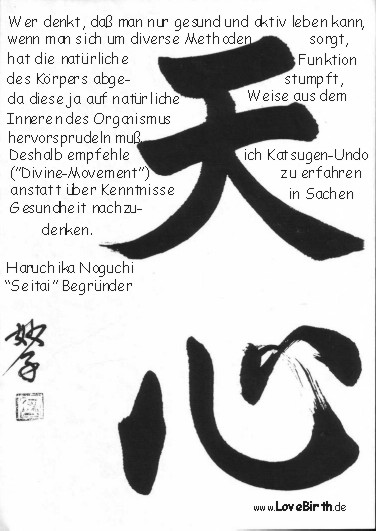 Wer denkt, daß man nur gesund und aktiv leben kann,
wenn man sich um diverse Methoden sorgt,
hat die natürliche Funktion
des Körpers abge- stumpft,
da diese ja auf natürliche Weise aus dem
Inneren des Organismus
hervorsprudeln muß.
Deshalb empfehle ich Katsugen-Undo
("Divine-Movement") zu erfahren
anstatt über Kenntnisse in Sachen
Gesundheit nachzu-
denken.
Haruchika Noguchi
"Seitai" Begründer
天
心
妙子
www.LoveBirth.de